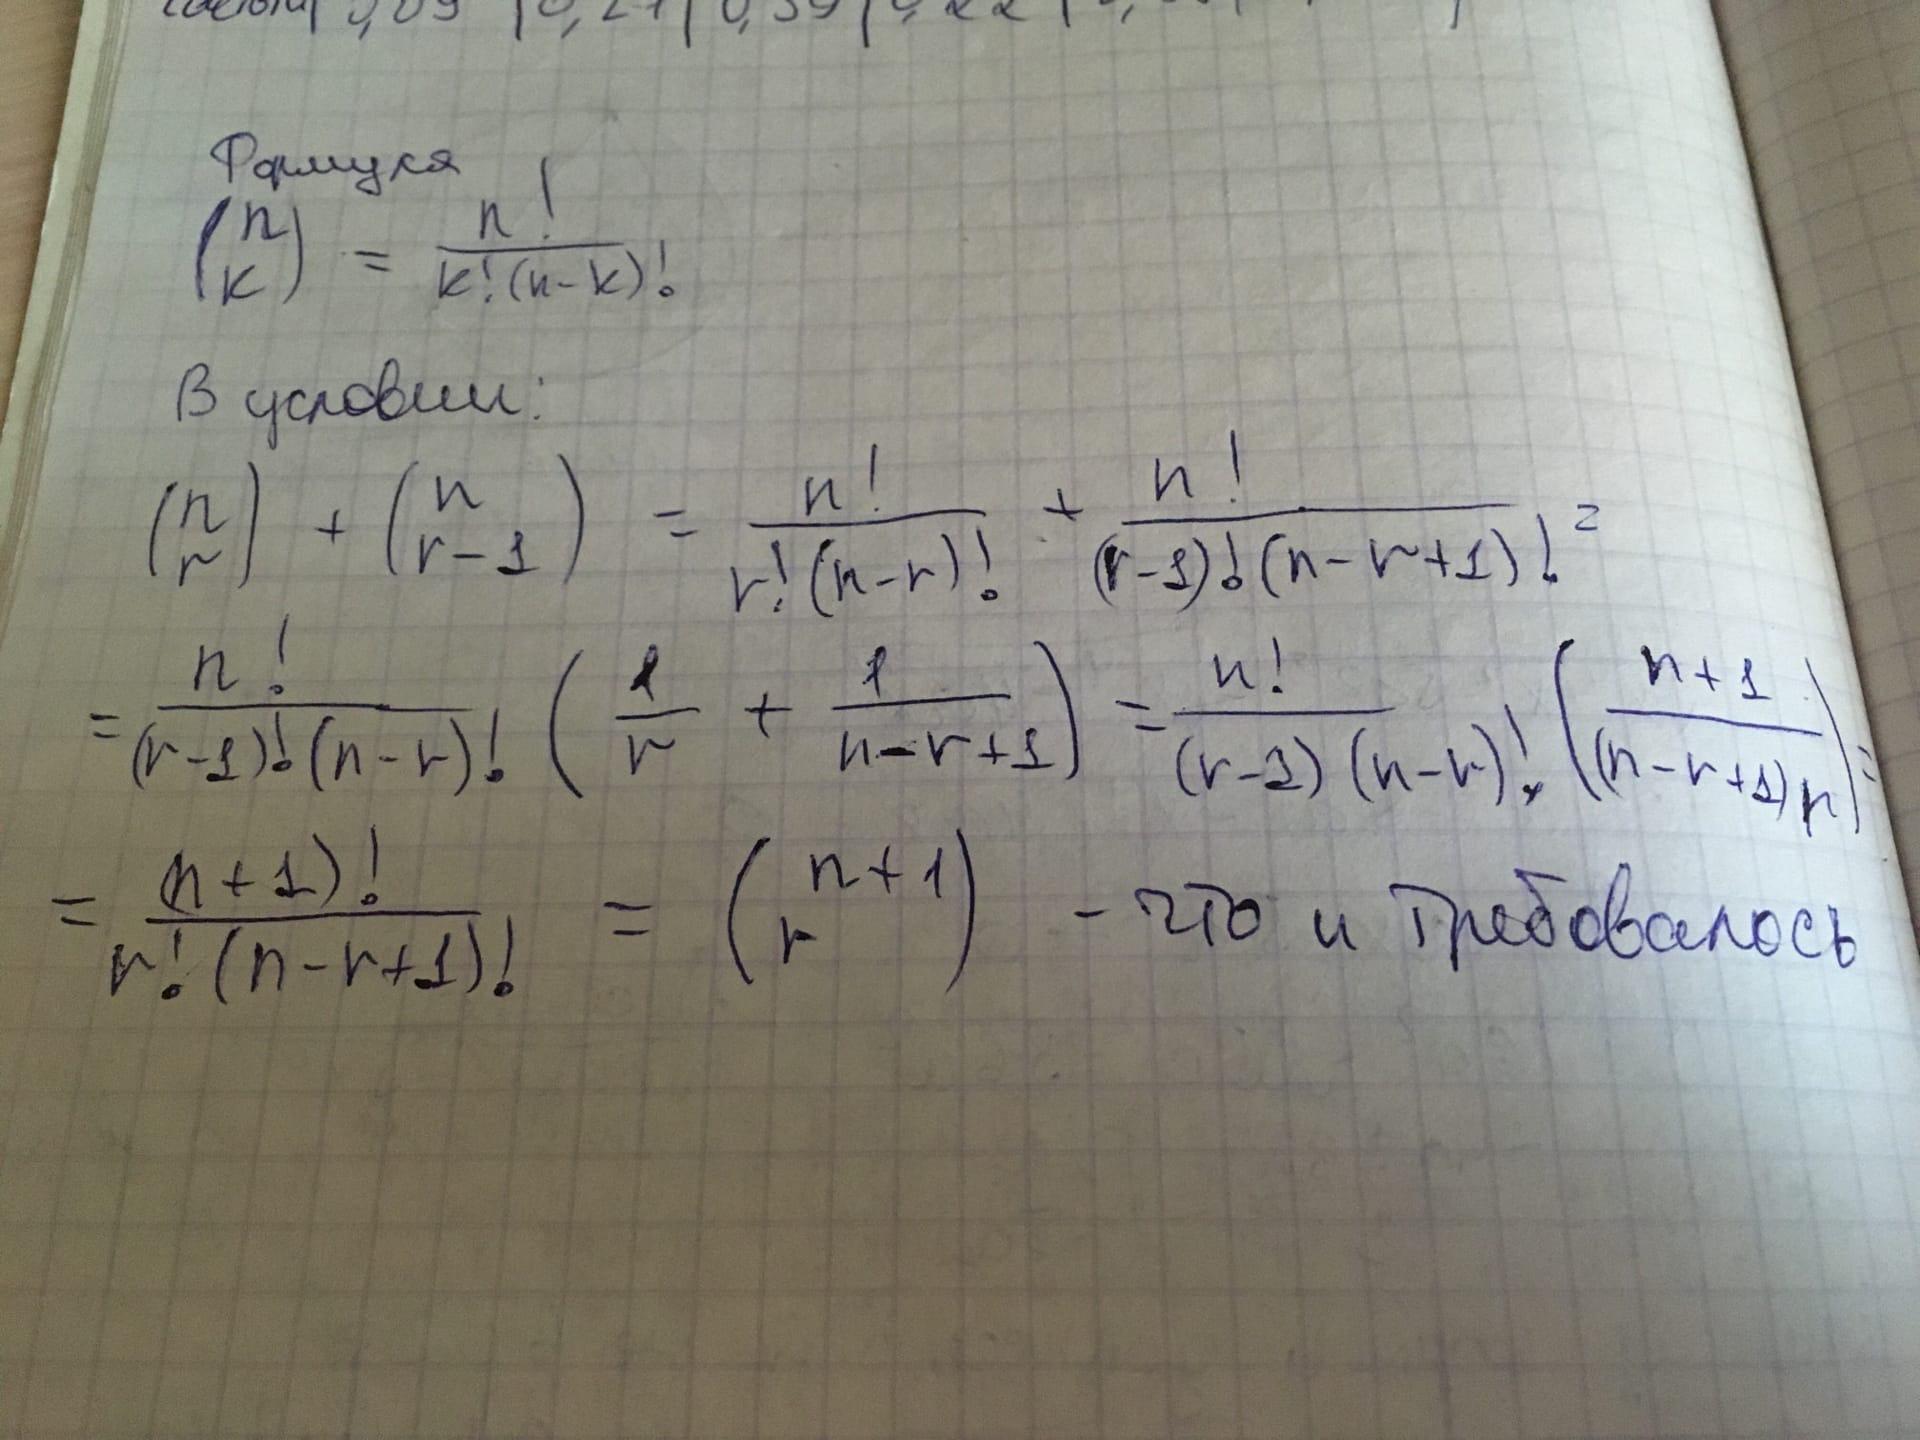 0,09 | 0,27 | 0,39 | 0,22 |
Формула
(n k) = n! / k!(n-k)!
В условии:
(n r) + (n r-1) = n! / r!(n-r)! + n! / (r-1)!(n-r+1)! =
= n! / (r-1)!(n-r)! (1/r + 1/n-r+1) = n! / (r-1)(n-r)! (n+1 / (n-r+1)r) =
= (n+1)! / r!(n-r+1)! = (n+1 r) - что и требовалось